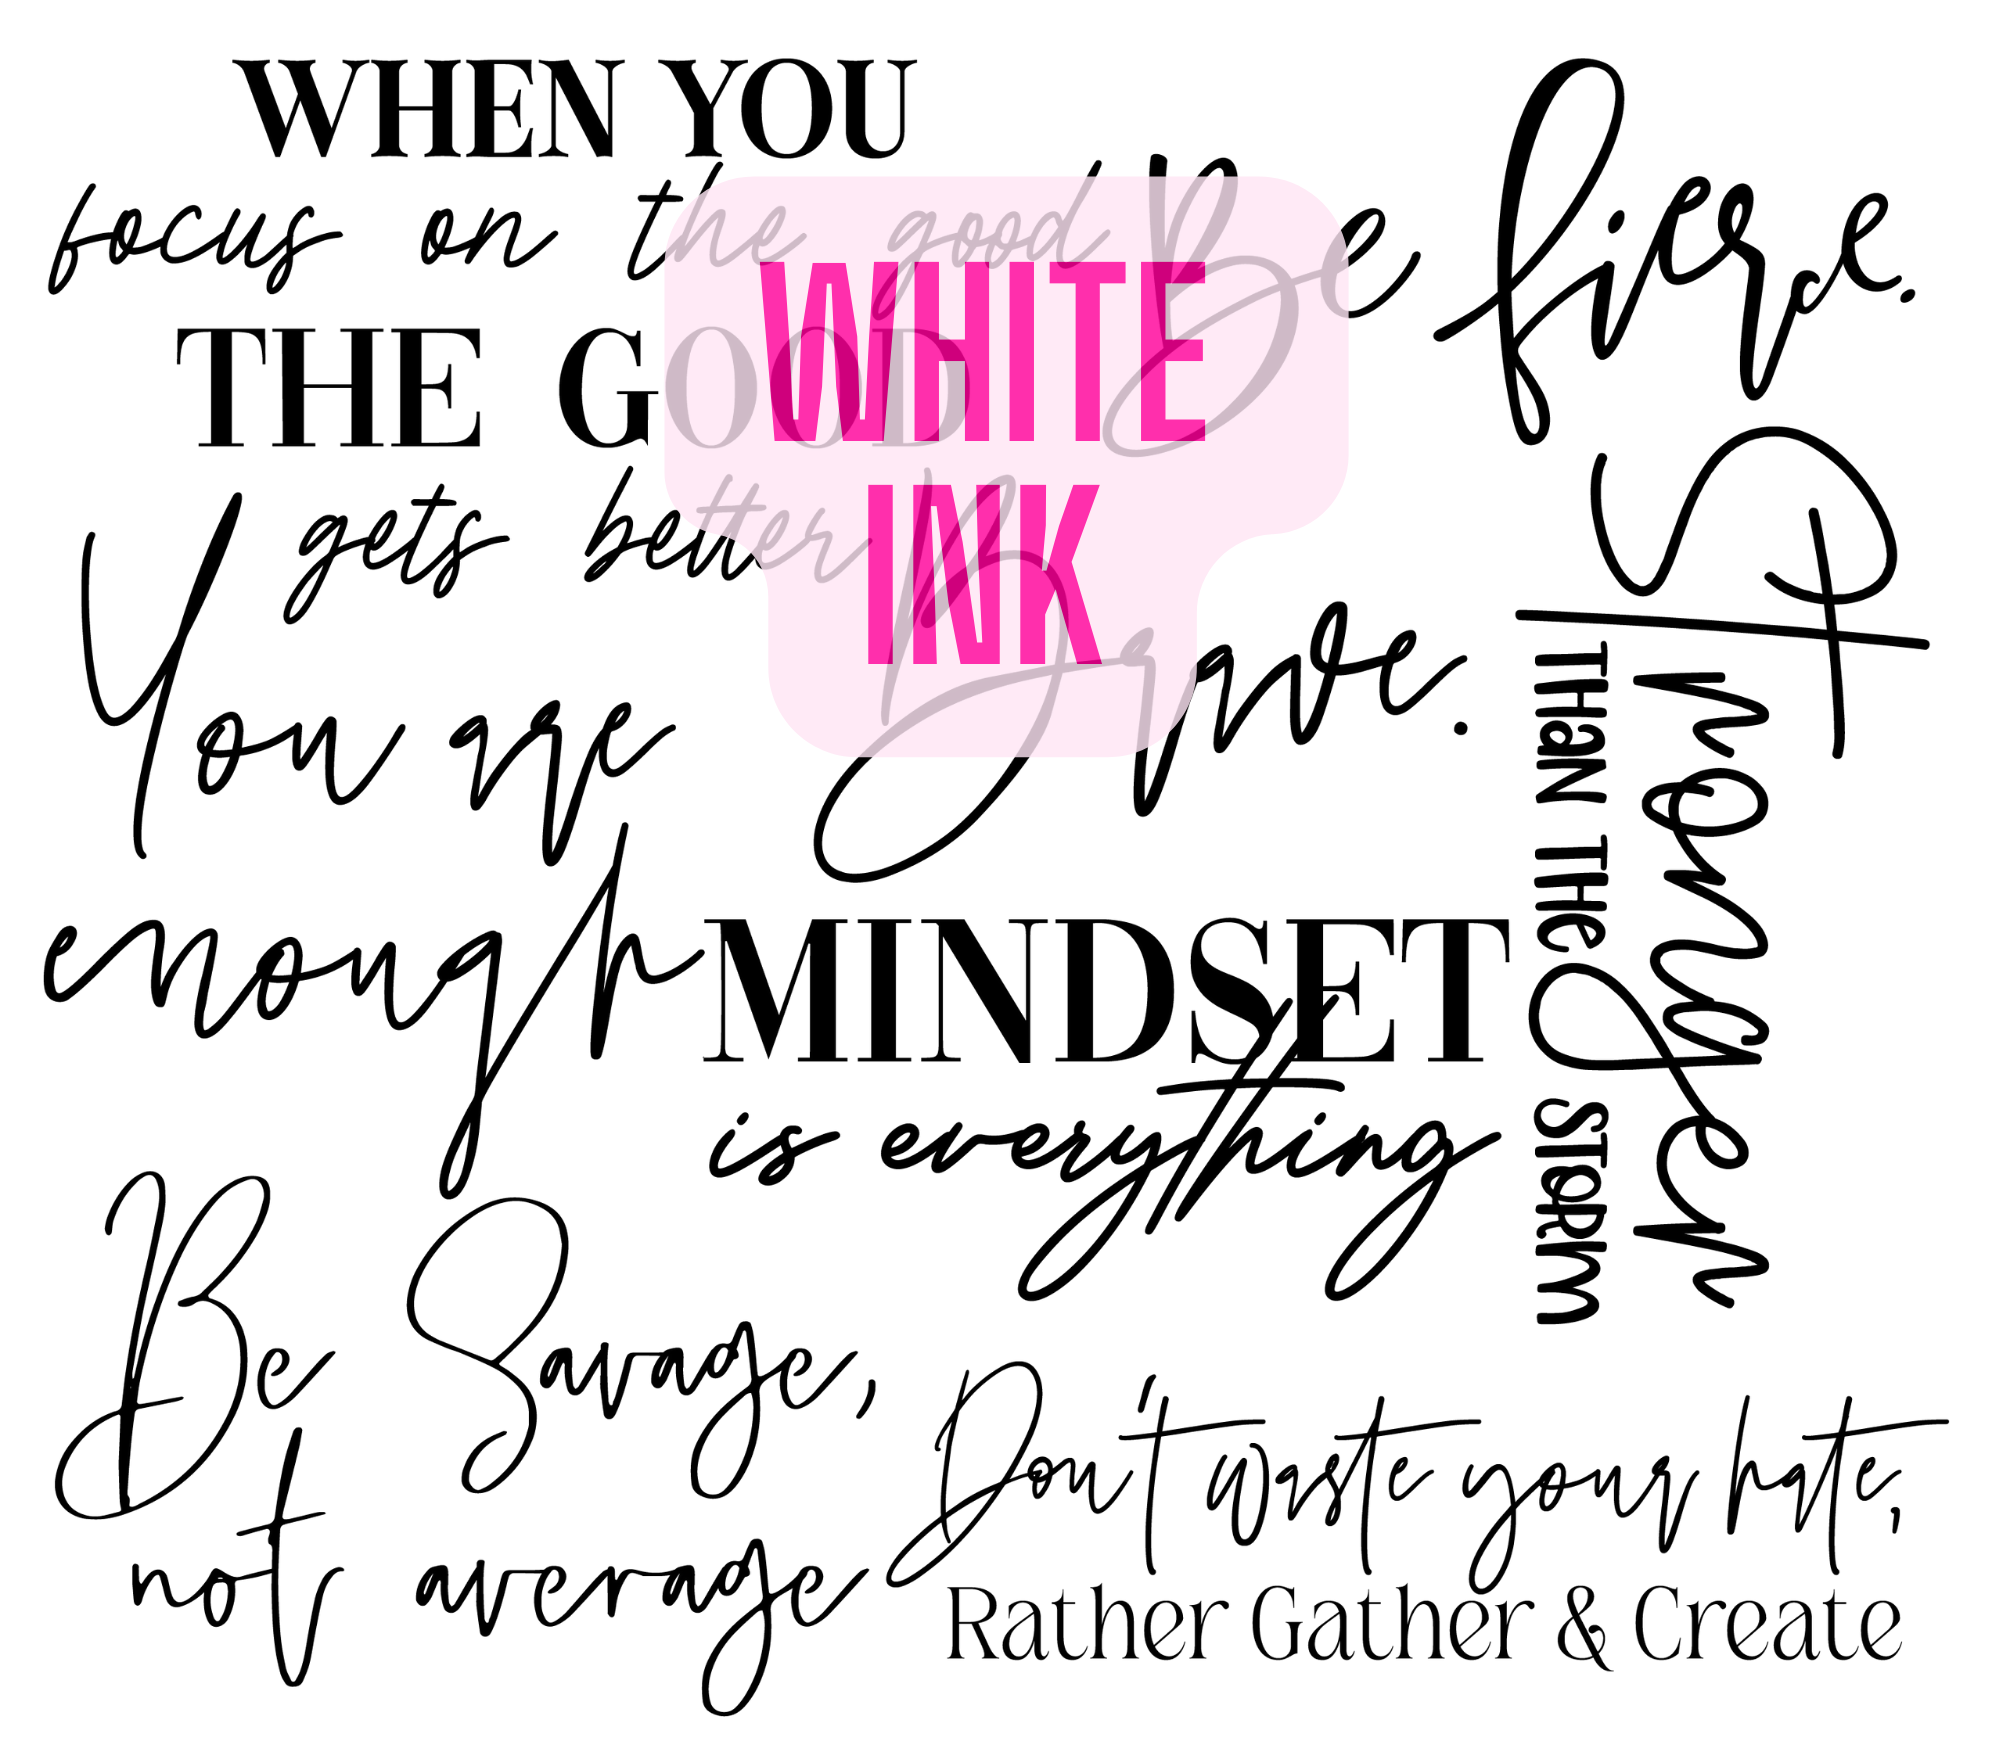 WHEN YOU
focus on the good
THE GOOD
gets better
Be fierce.
WHITE
INK
Brave.
You are
enough
Stronger
THAN THE STORM
MINDSET
is everything
Be Savage,
not average
Don't waste your hate,
Rather Gather & Create